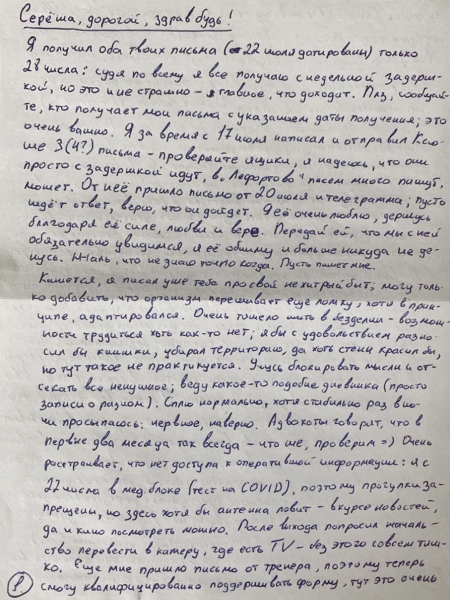 Серёша, дорогой, здрав будь!
Я получил оба твоих письма (от 22 июля датированы) только
28 числа: судя по всему я все получаю с недельной задерж-
кой, но это и не страшно - главное, что доходит. Плз, сообщай-
те, кто получает мои письма с указанием даты получения; это
очень важно. Я за время с 17 июля написал и отправил Ксю-
ше 3(4?) письма - проверяйте ящики, я надеюсь, что они
просто с задержкой идут, в "Лефортово" писем много пишут,
может. От неё пришло письмо от 20 июля и телеграмма; пусть
ждёт ответ, верю, что он дойдет. Я её очень люблю, держусь
благодаря её силе, любви и вере. Передай ей, что мы с ней
обязательно увидимся, я её обниму и больше никуда не де-
нусь. Жаль, что не знаю точно когда. Пусть пишет мне.
Кажется, я писал уже тебе про свой нехитрый быт; могу толь-
ко добавить, что организм переживает ещё ломку, хотя в прин-
ципе, адаптировался. Очень тяжело жить в безделии - возмож-
ности трудиться хоть как-то нет; я бы с удовольствием разно-
сил бы книжки, убирал территорию, да хоть стены красил бы,
но тут такое не практикуется. Учусь блокировать мысли и от-
секать все ненужное; веду какое-то подобие дневника (просто
записи о разном). Сплю нормально, хотя стабильно раз в но-
чи просыпаюсь: нервное, наверно. Адвокаты говорят, что в
первые два месяца так всегда - что же, проверим =) Очень
расстраивает, что нет доступа к оперативной информации: я с
22 числа в мед.блоке (тест на COVID), поэтому прогулки за-
прещены, но здесь хотя бы антенна ловит - в курсе новостей,
да и кино посмотреть можно. После выхода попросил началь-
ство перевести в камеру, где есть TV - без этого совсем тяж-
ко. Еще мне пришло письмо от тренера, поэтому теперь
смогу квалифицированно поддерживать форму, тут это очень
1